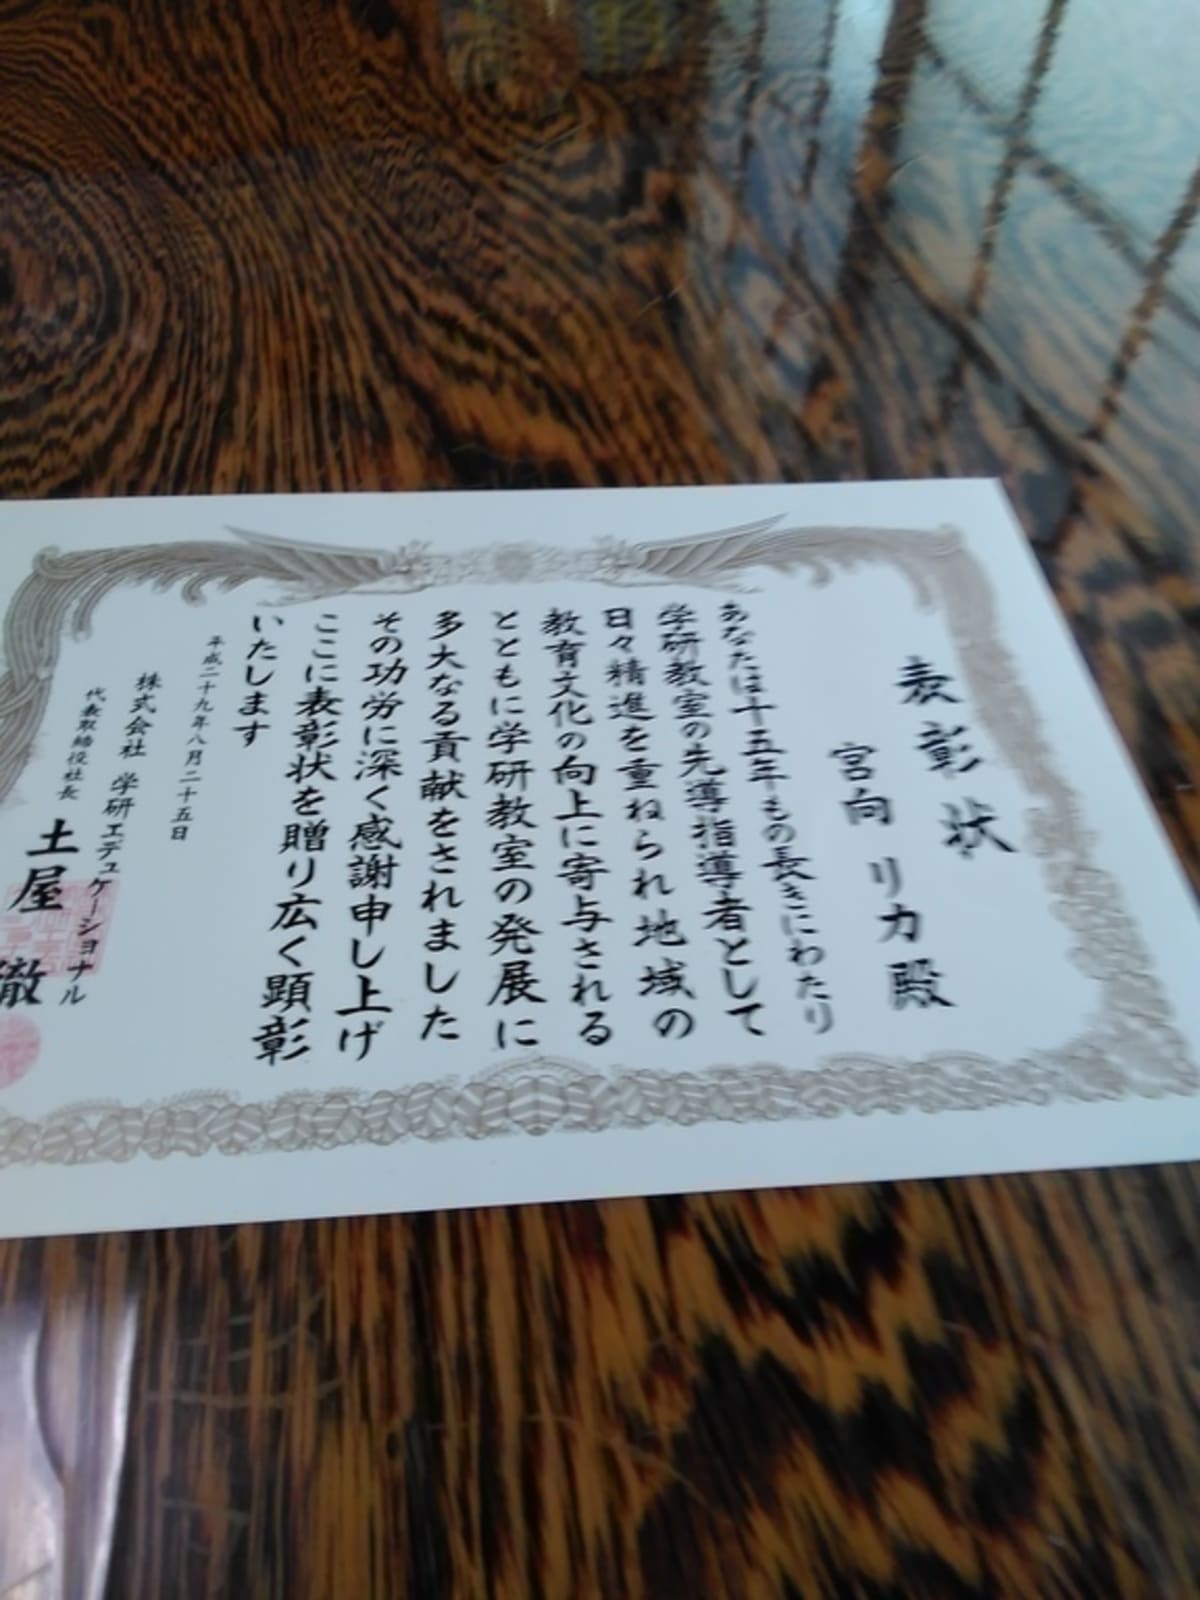 表彰状
宮向 リカ 殿
あなたは十五年もの長きにわたり
学研教室の先導指導者として
日々精進を重ねられ地域の
教育文化の向上に寄与される
とともに学研教室の発展に
多大なる貢献をされました
その功労に深く感謝申し上げ
ここに表彰状を贈り広く顕彰
いたします
平成二十九年八月二十五日
株式会社 学研エデュケーショナル
代表取締役社長 土屋 徹